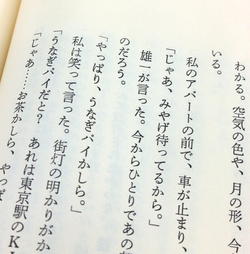 わかる。空気の色や、月の形、今
いる。
私のアパートの前で、車が止まり、
「じゃあ、みやげ待ってるから。」
雄一が言った。今からひとりであの
のだろう。
「やっぱり、うなぎパイかしら。」
私は笑って言った。街灯の明かりがか
「うなぎパイだと? あれは東京駅のK
「じゃあ……お茶かしら、やっぱ